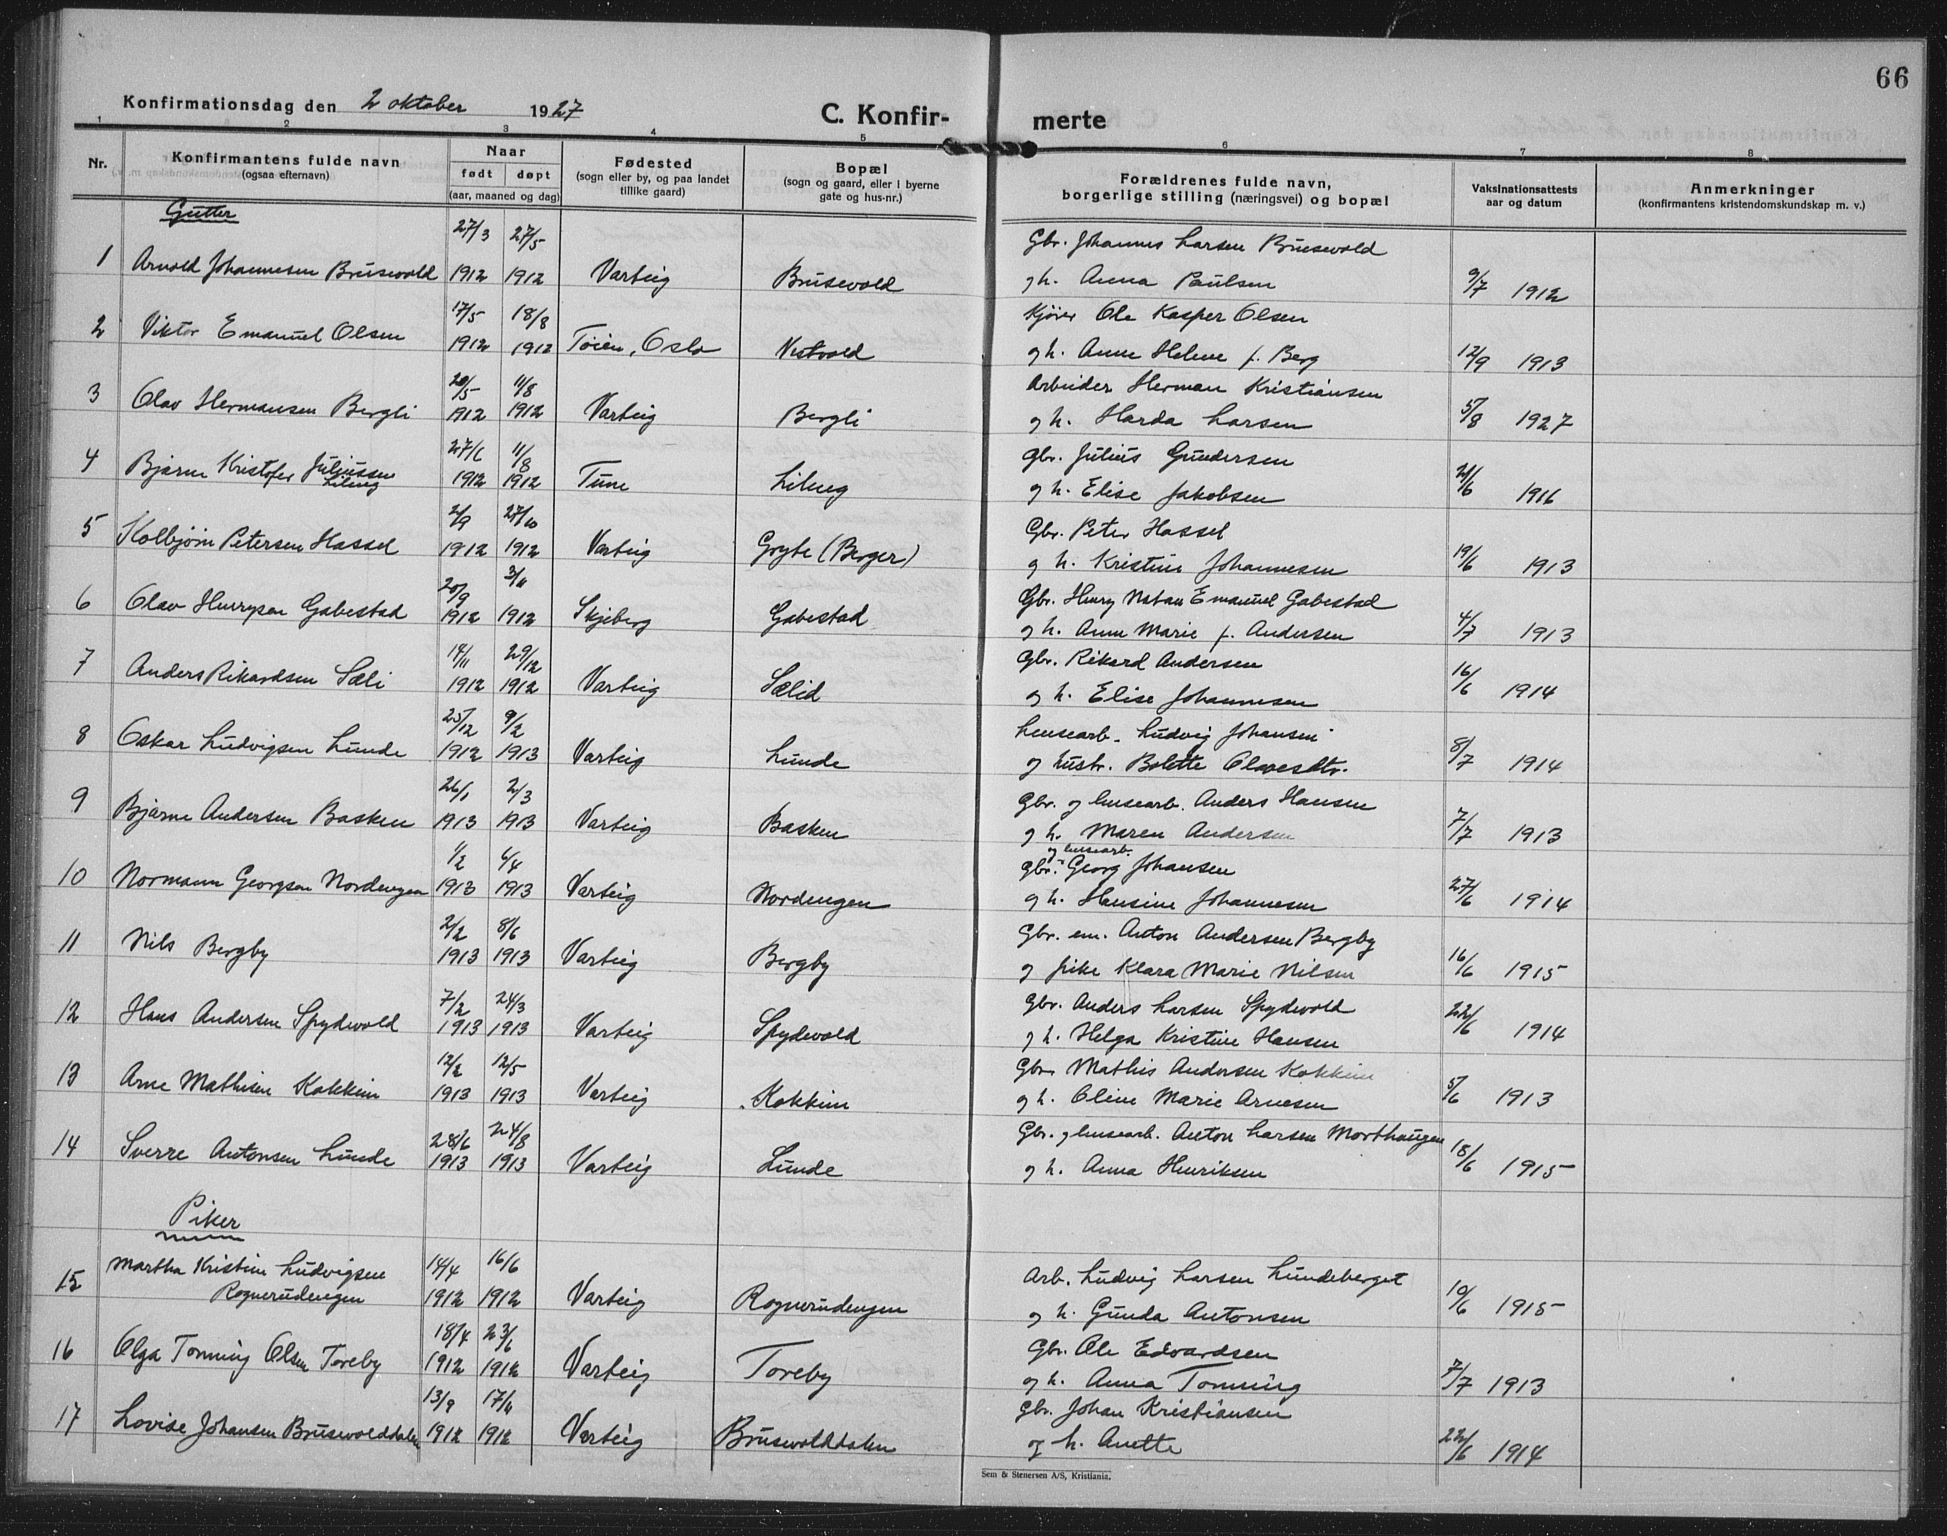 66
Konfirmationsdag den 2 oktober 1927
C. Konfir- merte
1 2 3 4 5 6 7 8
Nr. Konfirmantens fulde navn (ogsaa efternavn) Naar født døpt (aar, maaned og dag) Fødested (sogn eller by, og paa landet tillike gaard) Bopæl (sogn og gaard, eller i byerne gate og hus-nr.) Forældrenes fulde navn, borgerlige stilling (næringsvei) og bopæl Vaksinationsattests aar og datum Anmerkninger (konfirmantens kristendomskundskap m. v.)
Gutter
27/3 27/5 Gbr. Johannes Larsen Brusevold
1 Arnold Johannesen Brusevold 1912 1912 Varteig Brusevold og h. Anna Paulsen 9/7 1912
17/5 18/8 Kjører Ole Kasper Olsen
2 Viktor Emanuel Olsen 1912 1912 Tøien, Oslo Vestvold og h. Anne Helene f. Berg 12/9 1913
20/5 11/8 Arbeider Herman Kristiansen
3 Olav Hermansen Bergli 1912 1912 Varteig Bergli og h. Harda Larsen 5/8 1927
27/6 11/8 Gbr. Julius Gundersen
4 Bjarne Kristofer Juliussen Lileng 1912 1912 Tune Lileng og h. Elise Jakobsen 21/6 1916
2/9 27/10 Gbr. Peter Hassel
5 Kolbjørn Petersen Hassel 1912 1912 Varteig Gryte (Berger) og h. Kristine Johannesen 19/6 1913
20/9 3/11 Gbr. Henry Natan Emanuel Gabestad
6 Olav Henrysen Gabestad 1912 1912 Skjeberg Gabestad og h. Anne Marie f. Andersen 4/7 1913
19/11 29/12 Gbr. Rikard Andersen
7 Anders Rikardsen Sæli 1912 1912 Varteig Sælid og h. Elise Johannesen 16/6 1914
25/12 9/2 Lensearb. Ludvig Johansen
8 Oskar Ludvigsen Lunde 1912 1913 Varteig Lunde og hustr. Bolette Olavesdtr. 8/7 1914
26/1 2/3 Gbr. og lensearb. Anders Hansen
9 Bjarne Andersen Basken 1913 1913 Varteig Basken og h. Maren Andersen 7/7 1913
1/2 6/4 Gbr. og lensearb. Georg Johansen
10 Normann Georgsen Nordengen 1913 1913 Varteig Nordengen og h. Hansine Johannesen 27/6 1914
2/2 8/6 Gbr. em. Anton Andersen Bergby
11 Nils Bergby 1913 1913 Varteig Bergby og pike Klara Marie Nilsen 16/6 1915
7/2 24/3 Gbr. Anders Larsen Spydevold
12 Hans Andersen Spydevold 1913 1913 Varteig Spydevold og h. Helga Kristine Hansen 22/6 1914
12/2 12/5 Gbr. Mathis Andersen Kokkim
13 Arne Mathisen Kokkim 1913 1913 Varteig Kokkim og h. Oline Marie Arnesen 5/6 1913
28/6 24/8 Gbr. og lensearb. Anton Larsen Morthaugen
14 Sverre Antonsen Lunde 1913 1913 Varteig Lunde og h. Anna Henriksen 18/6 1915
Piker
Martha Kristine Ludvigsen 14/4 16/6 Arb. Ludvig Larsen Lundeberget
15 Rognerudengen 1912 1912 Varteig Rognerudengen og h. Gunda Antonsen 10/6 1915
18/4 23/6 Gbr. Ole Edvardsen
16 Olga Tonning Olsen Toreby 1912 1912 Varteig Toreby og h. Anna Tonning 7/7 1913
13/9 17/11 Gbr. Johan Kristiansen
17 Lovise Johansen Brusevolddalen 1912 1912 Varteig Brusevolddalen og h. Anette 22/6 1914
Sem & Stenersen A/S, Kristiania.